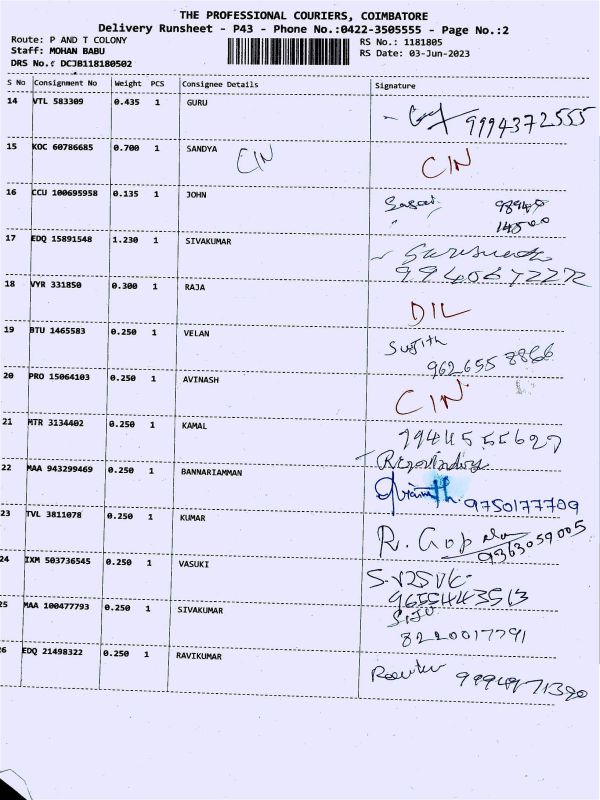 THE PROFESSIONAL COURIERS, COIMBATORE
Delivery Runsheet - P43 - Phone No.:0422-3505555 - Page No.:2
Route: P AND T COLONY RS No.: 1181805
Staff: MOHAN BABU RS Date: 03-Jun-2023
DRS No.: DCJB118180502
S No Consignment No Weight PCS Consignee Details Signature
14 VTL 583309 0.435 1 GURU 9994372555
15 KOC 60786685 0.700 1 SANDYA CIN CIN
16 CCU 100695958 0.135 1 JOHN
17 EDQ 15891548 1.230 1 SIVAKUMAR
18 VYR 331850 0.300 1 RAJA DIL
19 BTU 1465583 0.250 1 VELAN Sujith
962655 8866
20 PRO 15064103 0.250 1 AVINASH CIN
21 MTR 3134402 0.250 1 KAMAL
22 MAA 943299469 0.250 1 BANNARIAMMAN 9750177709
23 TVL 3811078 0.250 1 KUMAR R. Gop 9363059005
24 IXM 503736545 0.250 1 VASUKI
9655443513
25 MAA 100477793 0.250 1 SIVAKUMAR
8220017791
26 EDQ 21498322 0.250 1 RAVIKUMAR